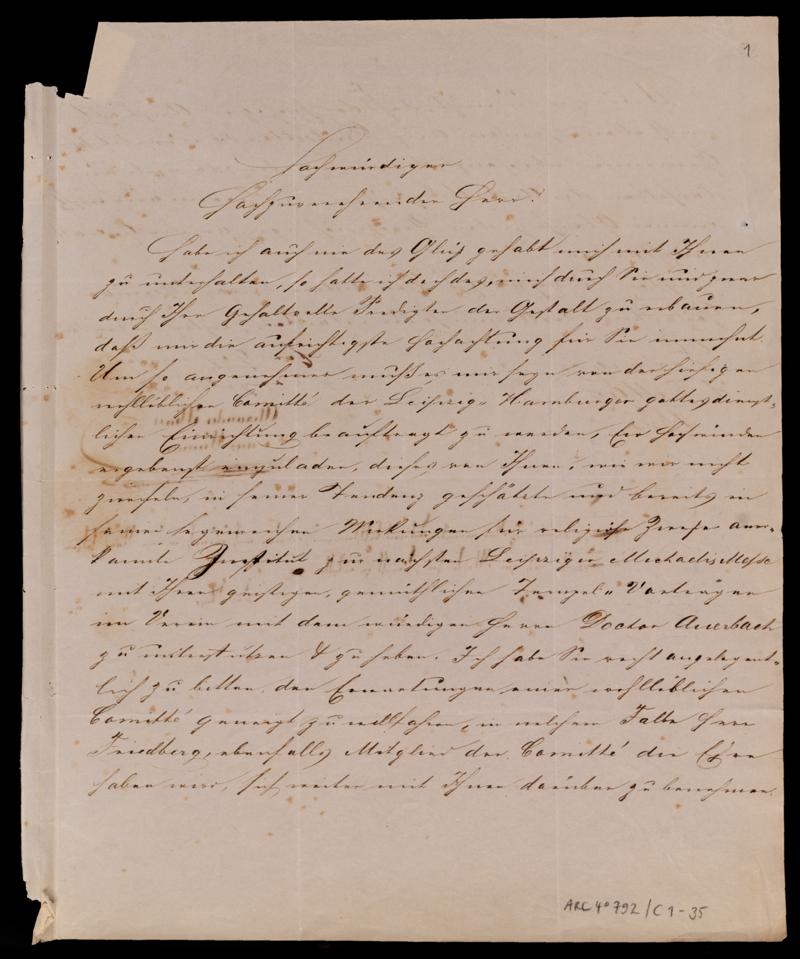 1
Hochwürdiger
Hochzuverehrender Herr!
Habe ich auch nie das Glück gehabt mich mit Ihnen
zu unterhalten, so hatte ich doch das, mich durch Sie und zwar
durch Ihre Gehaltvolle Predigten der Gestalt zu erbauen,
daß mir die aufrichtigste Hochachtung für Sie innewohnt.
Um so angenehmer muß es mir seyn von der hiesigen
wohllöblichen Comitté der Leipzig-Hamburger gottesdienst-
lichen Einrichtung beauftragt zu werden, Ew Hochwürden
ergebenst einzuladen, dieses von Ihnen, wie wir nicht
zweifeln, in seiner Tendenz geschätzte und bereits in
seinen segensreichen Wirkungen für religiöse Zwecke aner-
kannte Institut zur nächsten Leipziger Michaelis Messe
mit Ihren geistigen, gemüthlichen Tempel-Vorträgen
im Verein mit dem würdigen Herrn Doctor Auerbach
zu unterstützen & zu heben. Ich habe Sie recht angelegent-
lich zu bitten den Erwartungen einer wohllöblichen
Comitté geneigt zu willfahren, in welchem Falle Herr
Friedberg, ebenfalls Mitglied der Comitté die Ehre
haben wird, sich weiter mit Ihnen darüber zu benehmen.
ARC 4° 792 / C 1 - 35